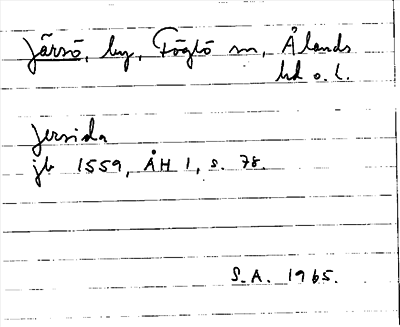 Järsö, by, Föglö sn, Ålands
hd o. l.
Jersida
jb 1559, ÅH 1, s. 78.
S.A. 1965.